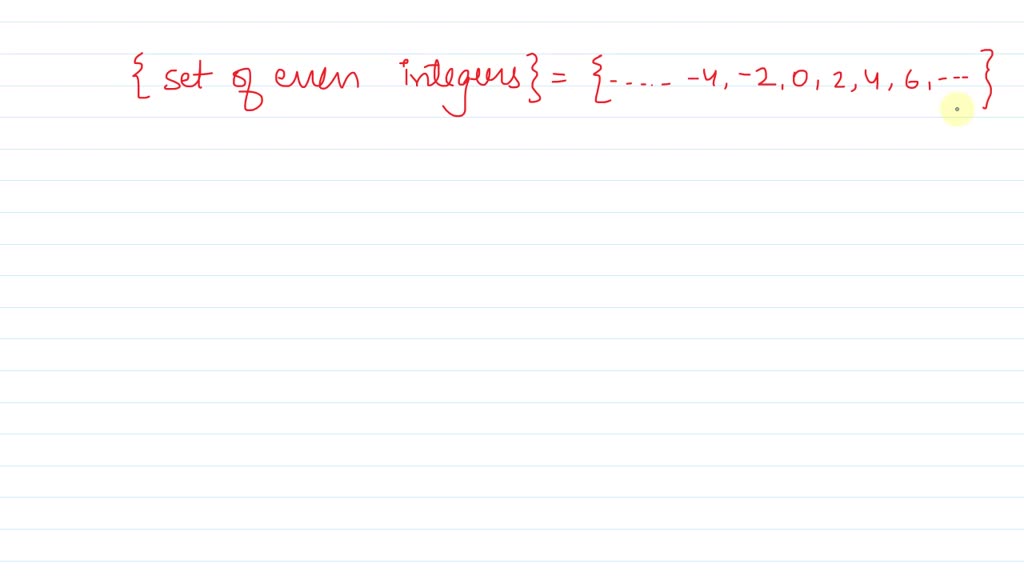 { set of even integers } = { ..... -4, -2, 0, 2, 4, 6, --- }